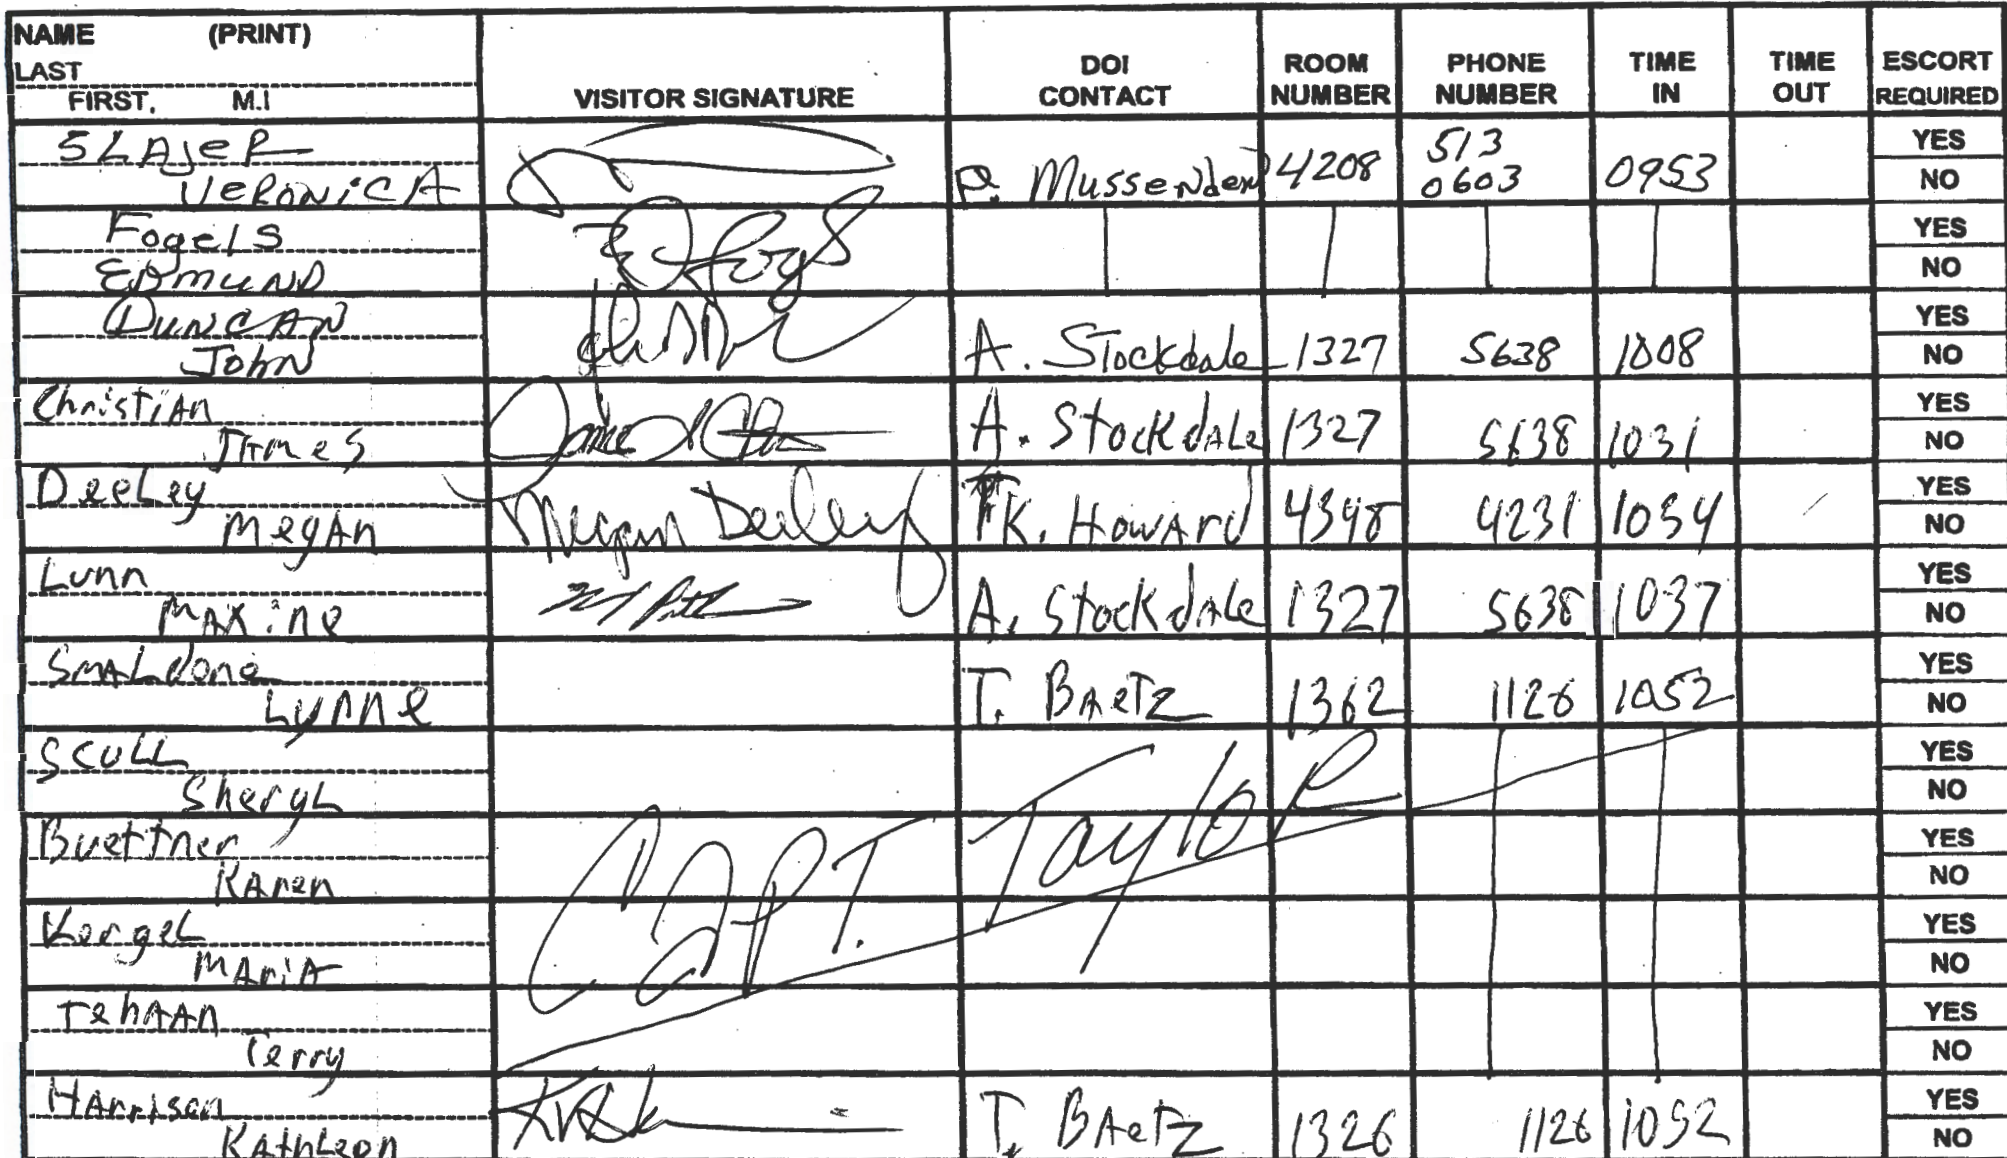 NAME (PRINT)
LAST
FIRST, M.I
VISITOR SIGNATURE
DOI CONTACT
ROOM NUMBER
PHONE NUMBER
TIME IN
TIME OUT
ESCORT REQUIRED
SLAJER VERONICA P. Mussenden 4208 513 0603 0953 YES NO
Fogels EDMUND YES NO
DUNCAN John A. Stockdale 1327 5638 1008 YES NO
Christian James A. Stockdale 1327 5638 1031 YES NO
Deeley Megan Megan Deeley K. Howard 4348 4231 1034 YES NO
Lunn Maxine A. Stockdale 1327 5638 1037 YES NO
Smaldone Lynne T. Baetz 1362 1126 1052 YES NO
Scull Sheryl YES NO
Buettner Karen CAPT. Taylor YES NO
Maria YES NO
Tehaan Terry YES NO
Harrison Kathleen T. Baetz 1326 1126 1052 YES NO